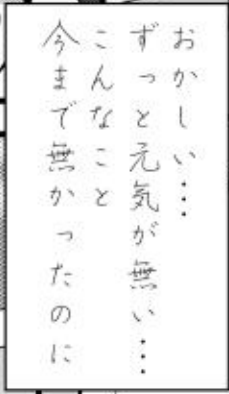 おかしい…
ずっと元気が無い…
こんなこと
今まで無かったのに